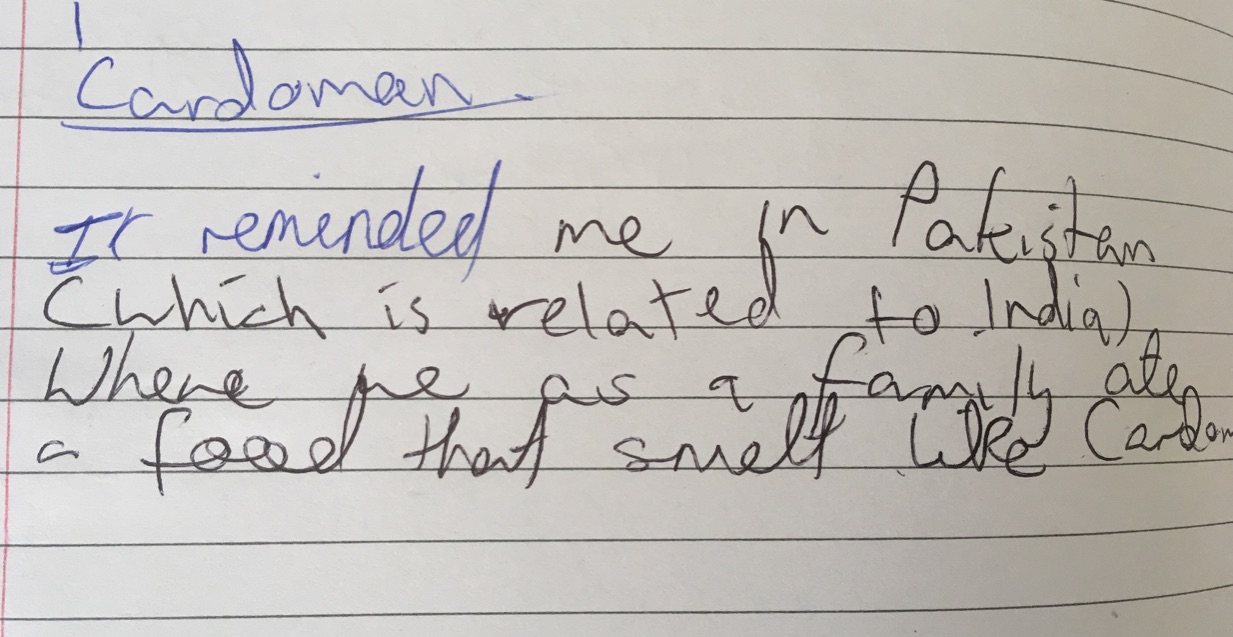 Cardoman
It reminded me in Pakistan
(which is related to India)
Where me as a family ate
a food that smelt like Cardom